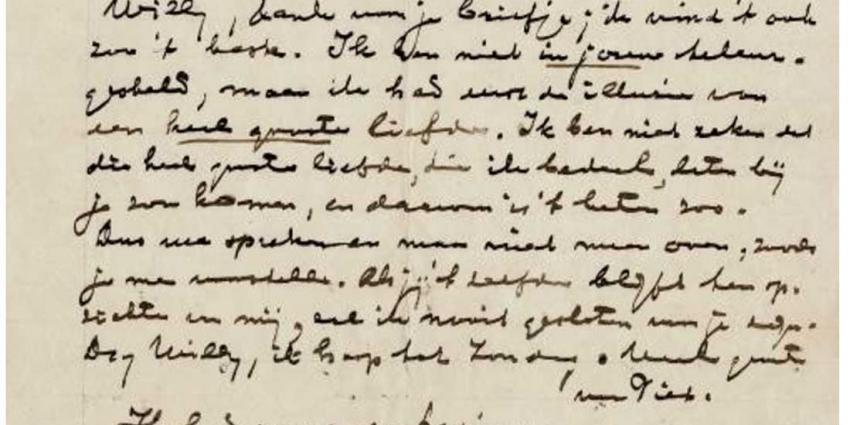 Willy, dank voor je briefje; ik vind 't ook
zoo 't beste. Ik ben niet in jouw teleur-
gesteld, maar ik had eerst de illusie van
een heele groote liefde. Ik ben niet zeker dat
die heele groote liefde, die ik bedoel, later bij
je zou komen, en daarom is 't beter zoo.
Dus we spreken er maar niet meer over, zooals
je me voorstelde. Als jij 't zelfde blijft ten op-
zichte van mij, zal ik nooit gesloten voor je zijn.
Dag Willy, ik hoop tot Zondag. Veel groete
van Piet.
Ik